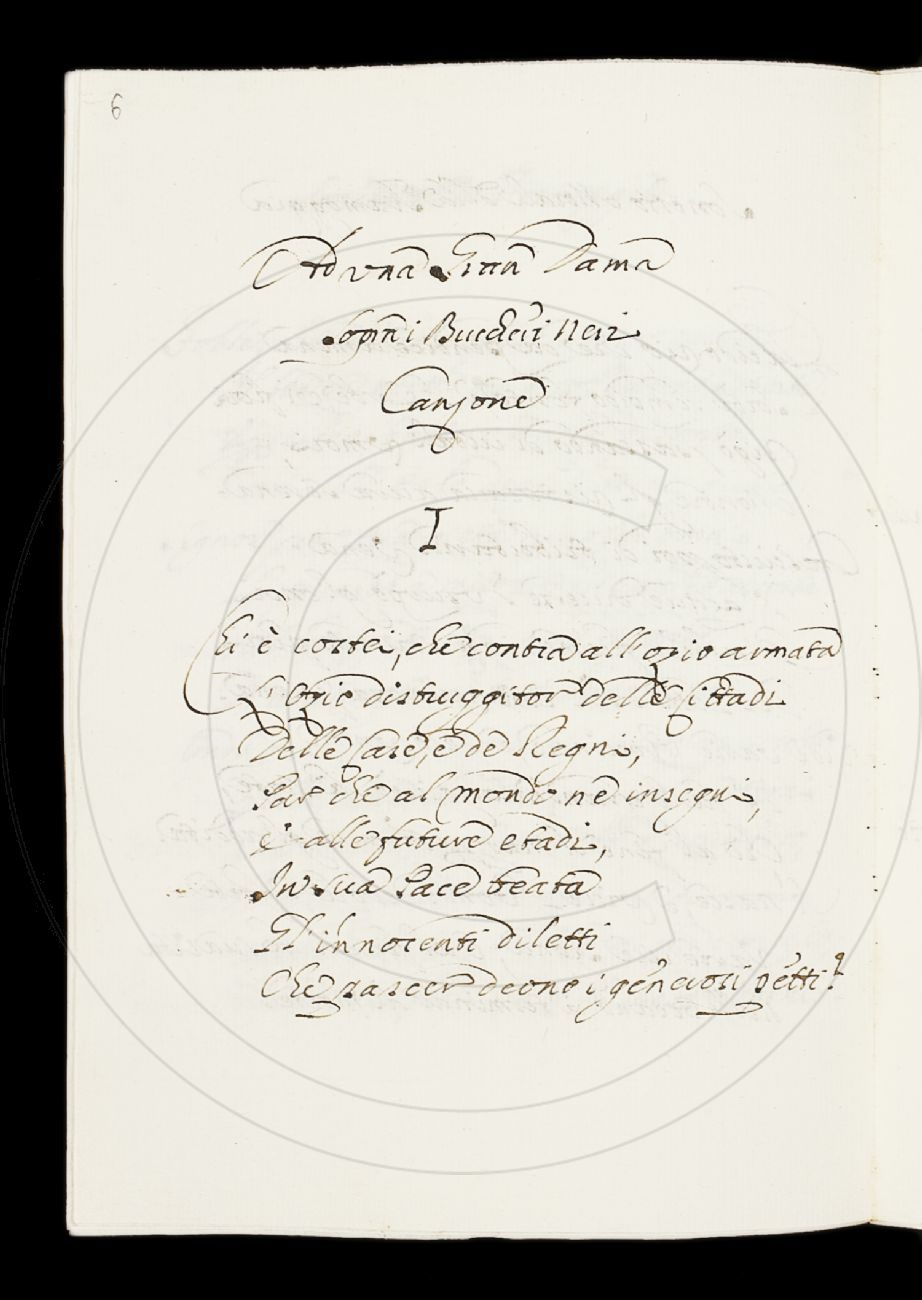 6
Ad vna Gran Dama
sopra i Buccheri Neri
Canzone
I
Chi è costei, che contra all'ozio armata
L'Ozio distruggitor delle Cittadi
Delle Case, e de Regni,
Par che al mondo ne insegni,
E alle future etadi,
In sua Pace beata
Gl'innocenti diletti
Che pascer deono i generosi petti?